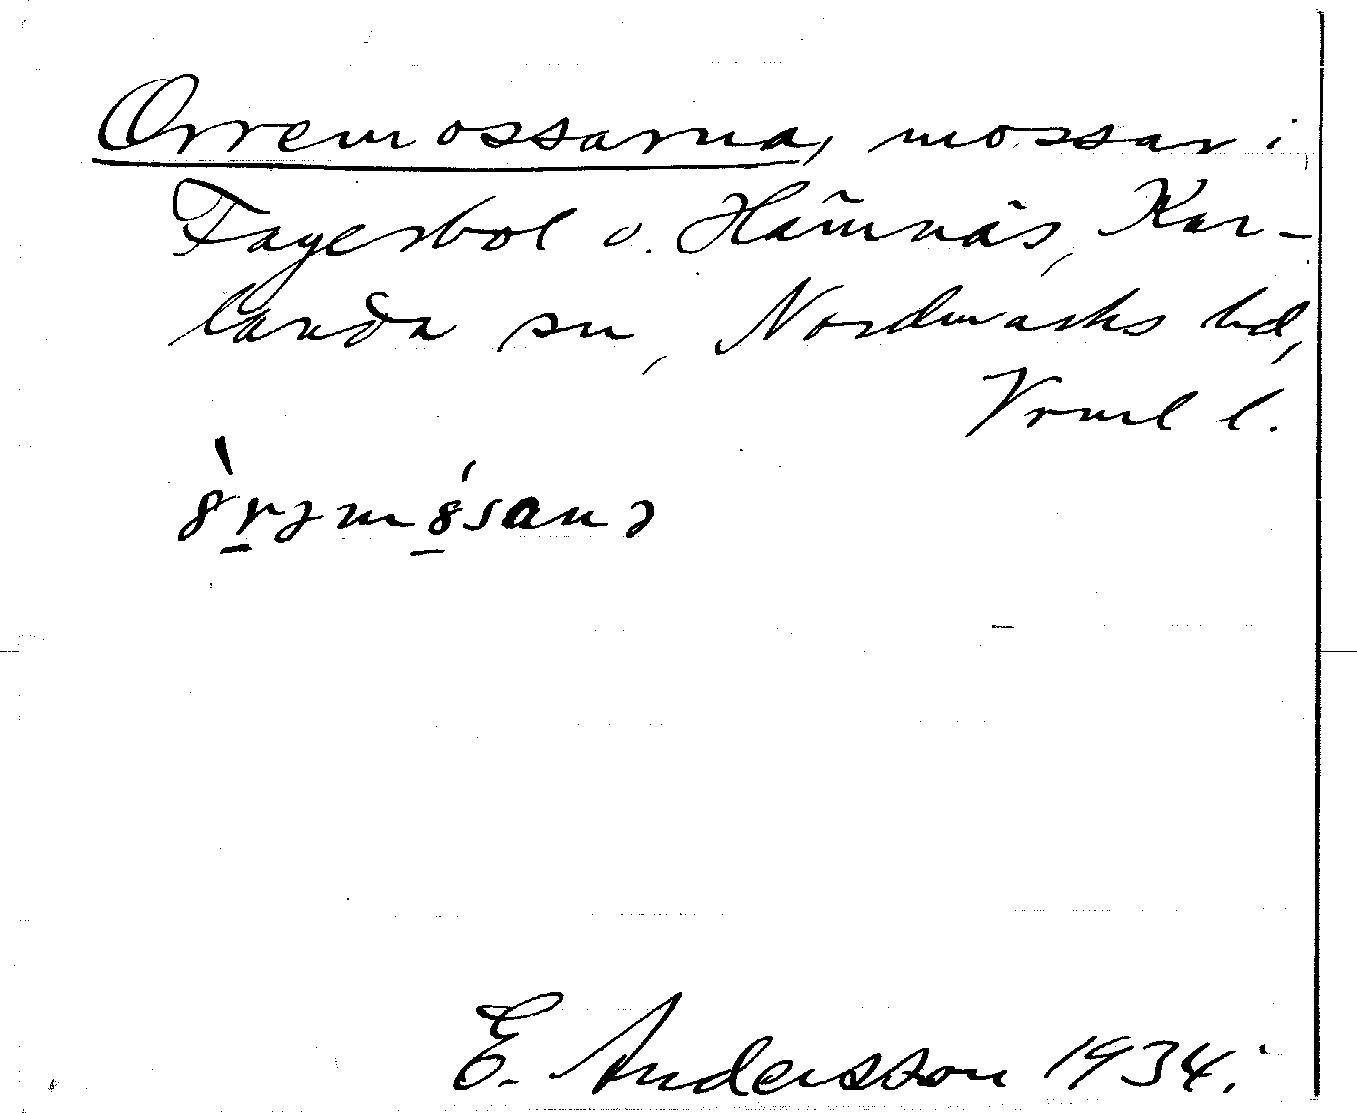 Orremossarna, mossar i
Fagerbol o. Hämnäs, Kar-
landa sn, Nordmarks hd,
Vrml l.
E. Andersson 1934.